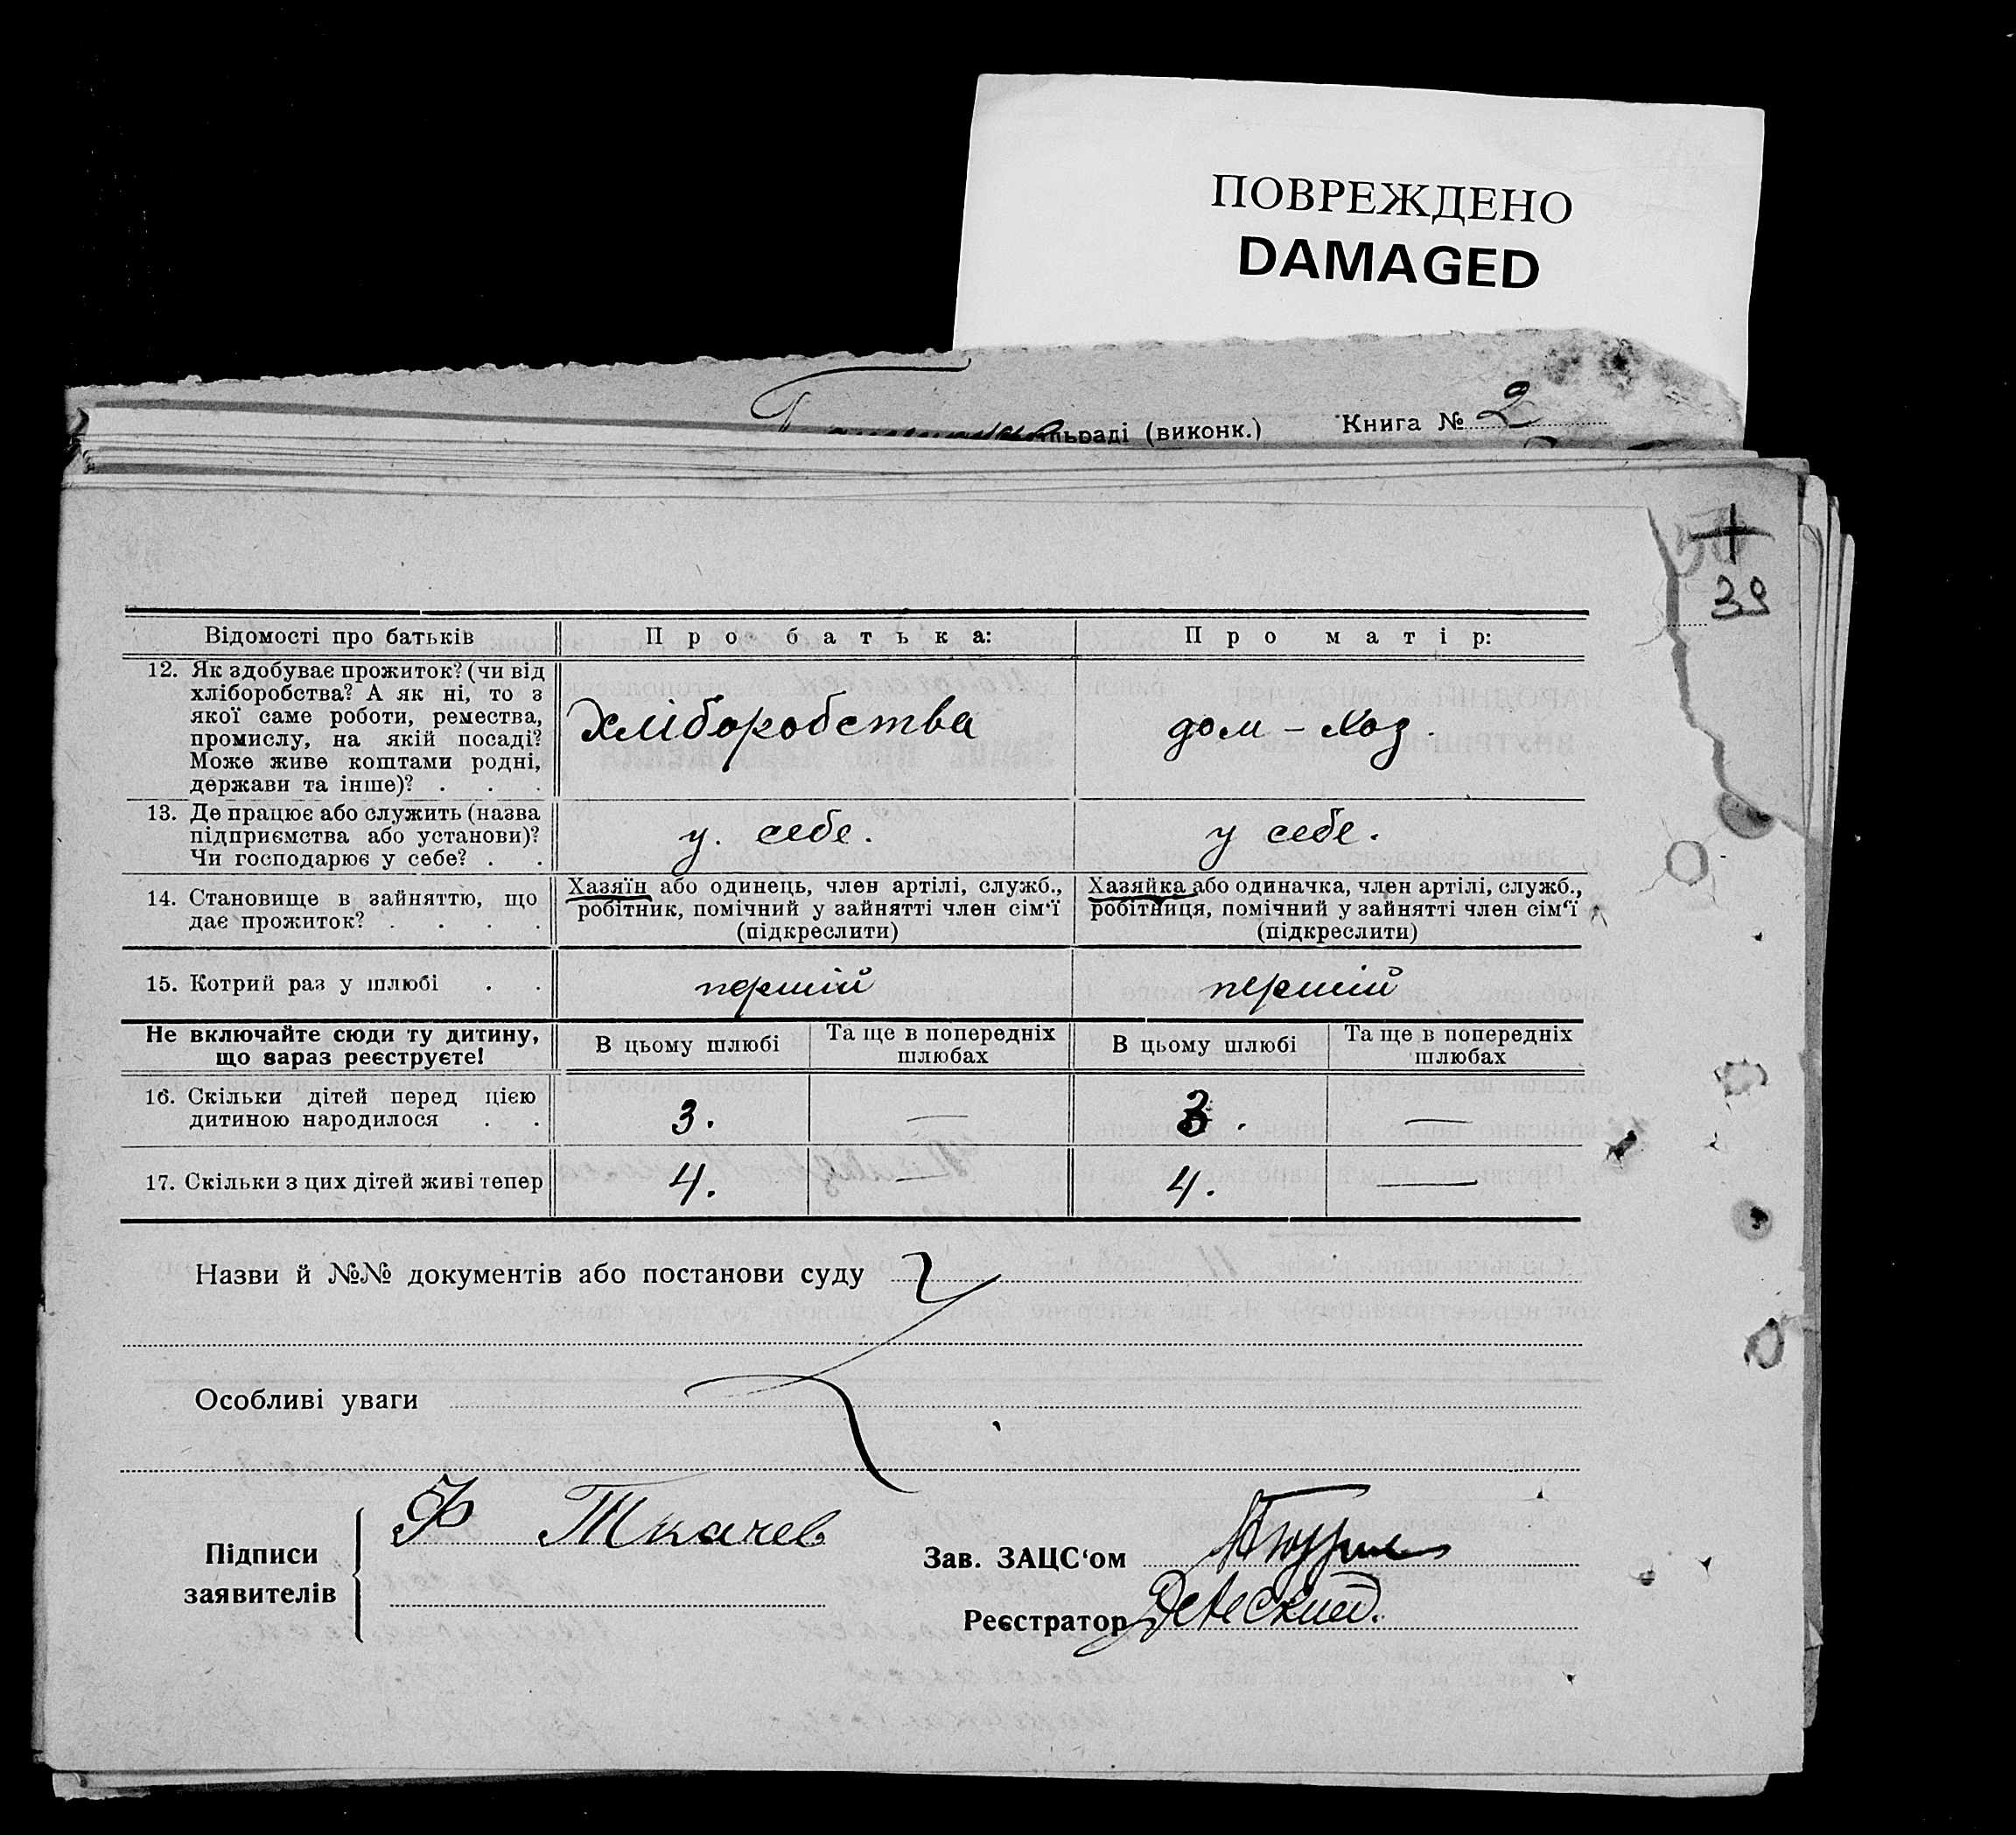 ПОВРЕЖДЕНО
DAMAGED
(виконк.) Книга № 2
39
Відомості про батьків Про батька: Про матір:
12. Як здобуває прожиток? (чи від
хліборобства? А як ні, то з
якої саме роботи, ремества,
промислу, на якій посаді?
Може живе коштами родні,
держави та інше)? . . .
хліборобства дом – хоз.
13. Де працює або служить (назва
підприємства або установи)?
Чи господарює у себе? . .
у. себе. у себе.
14. Становище в зайняттю, що
дає прожиток? . . . .
Хазяїн або одинець, член артілі, служб.,
робітник, помічний у зайнятті член сім'ї
(підкреслити)
Хазяйка або одиначка, член артілі, служб.,
робітниця, помічний у зайнятті член сім'ї
(підкреслити)
15. Котрий раз у шлюбі . . першій першій
Не включайте сюди ту дитину,
що зараз реєструєте!
В цьому шлюбі Та ще в попередніх
шлюбах
В цьому шлюбі Та ще в попередніх
шлюбах
16. Скільки дітей перед цією
дитиною народилося . .
3. — 3. —
17. Скільки з цих дітей живі тепер 4. — 4. —
Назви й №№ документів або постанови суду
Особливі уваги
Підписи
заявителів
Ф Ткачев
Зав. ЗАЦС'ом
Реєстратор